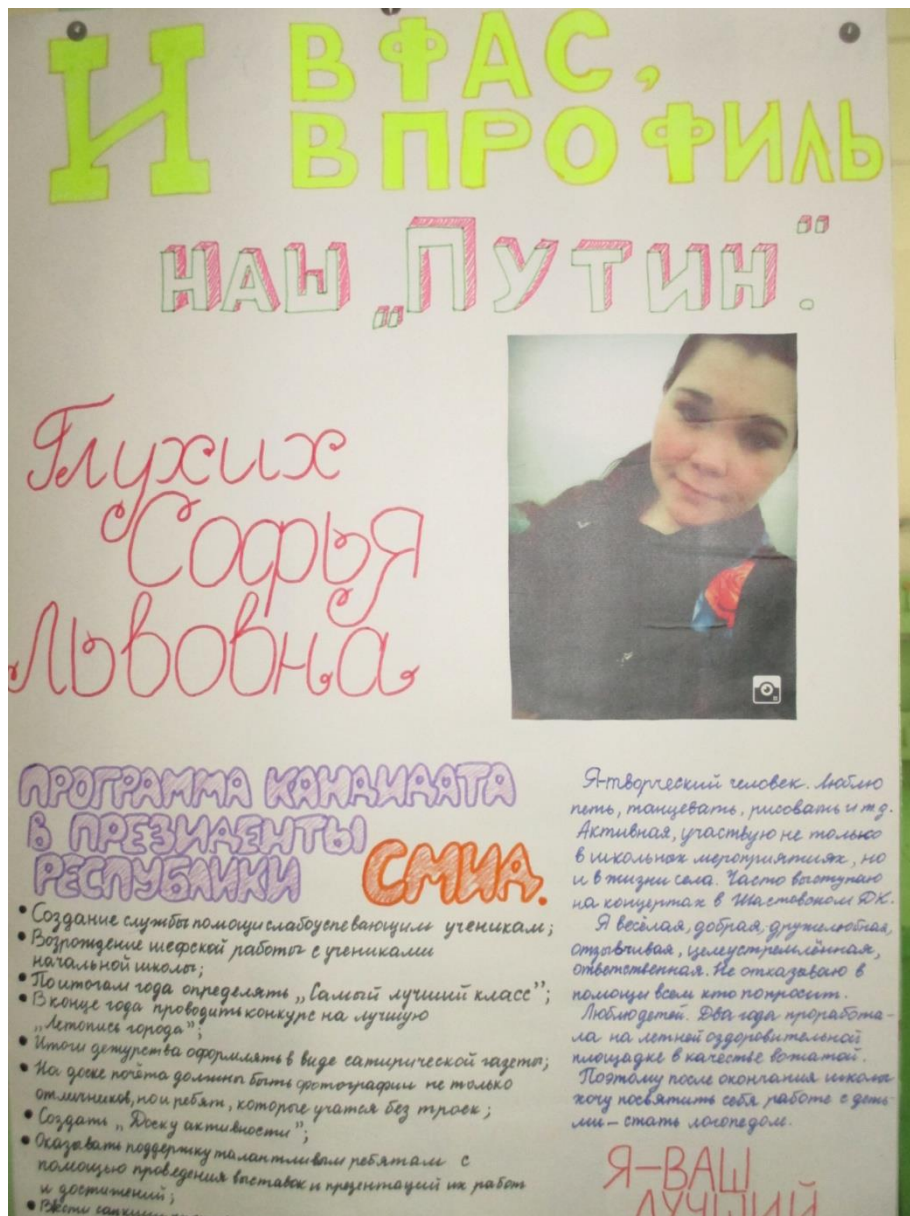 И В ФАС,
В ПРОФИЛЬ
НАШ „ПУТИН."
Глухих
Софья
Львовна
ПРОГРАММА КАНДИДАТА
В ПРЕЗИДЕНТЫ
РЕСПУБЛИКИ СМИД.
• Создание службы помощи слабоуспевающим ученикам;
• Возрождение шефской работы с учениками
начальной школы;
• По итогам года определять „Самый лучший класс";
• В конце года проводить конкурс на лучшую
„Летопись города";
• Итоги дежурства оформлять в виде сатирической газеты;
• На доске почёта должны быть фотографии не только
отличников, но и ребят, которые учатся без троек;
• Создать „Доску активности";
• Оказывать поддержку талантливым ребятам с
помощью проведения выставок и презентаций их работ
и достижений;
• Ввести
Я-творческий человек. Люблю
петь, танцевать, рисовать и т.д.
Активная, участвую не только
в школьных мероприятиях, но
и в жизни села. Часто выступаю
на концертах в Шастовском ДК.
Я весёлая, добрая, дружелюбная,
отзывчивая, целеустремлённая,
ответственная. Не отказываю в
помощи всем кто попросит.
Люблю детей. Два года проработа-
ла на летней оздоровительной
площадке в качестве вожатой.
Поэтому после окончания школы
хочу посвятить себя работе с деть-
ми – стать логопедом.
Я – ВАШ
ЛУЧШИЙ